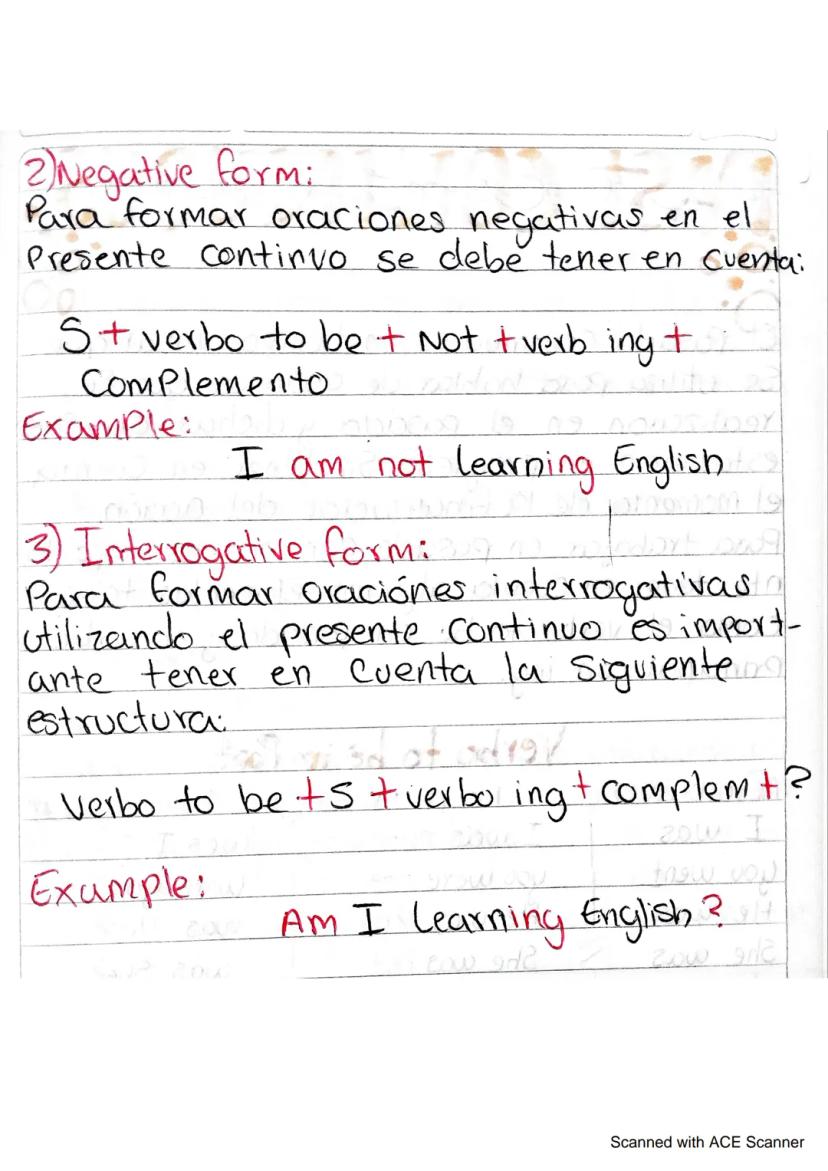 2) Negative form:
Para formar oraciones negativas en el
Presente continuo se debe tener en cuenta:
S + verbo to be + Not + verb ing +
Complemento
Example:
I am not learning English
3) Interrogative form:
Para formar oraciónes interrogativas
utilizando el presente continuo es import-
ante tener en cuenta la siguiente
estructura:
Verbo to be + S + verbo ing + complem + ?
Example:
Am I learning English?
Scanned with ACE Scanner